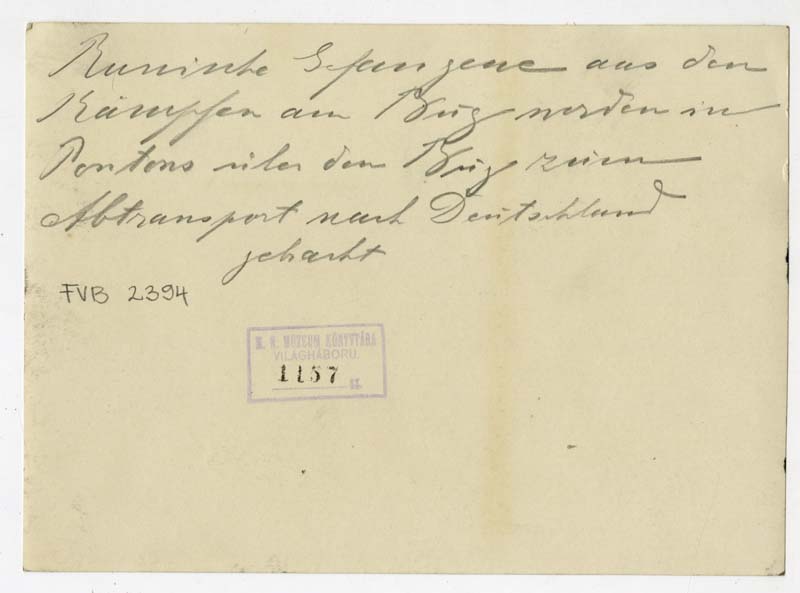 Russische Gefangene aus den
Kämpfen am Bug werden in
Pontons über den Bug zum
Abtransport nach Deutschland
gebracht
FVB 2394
M. N. MÚZEUM KÖNYVTÁRA
VILÁGHÁBORU.
1157 sz.